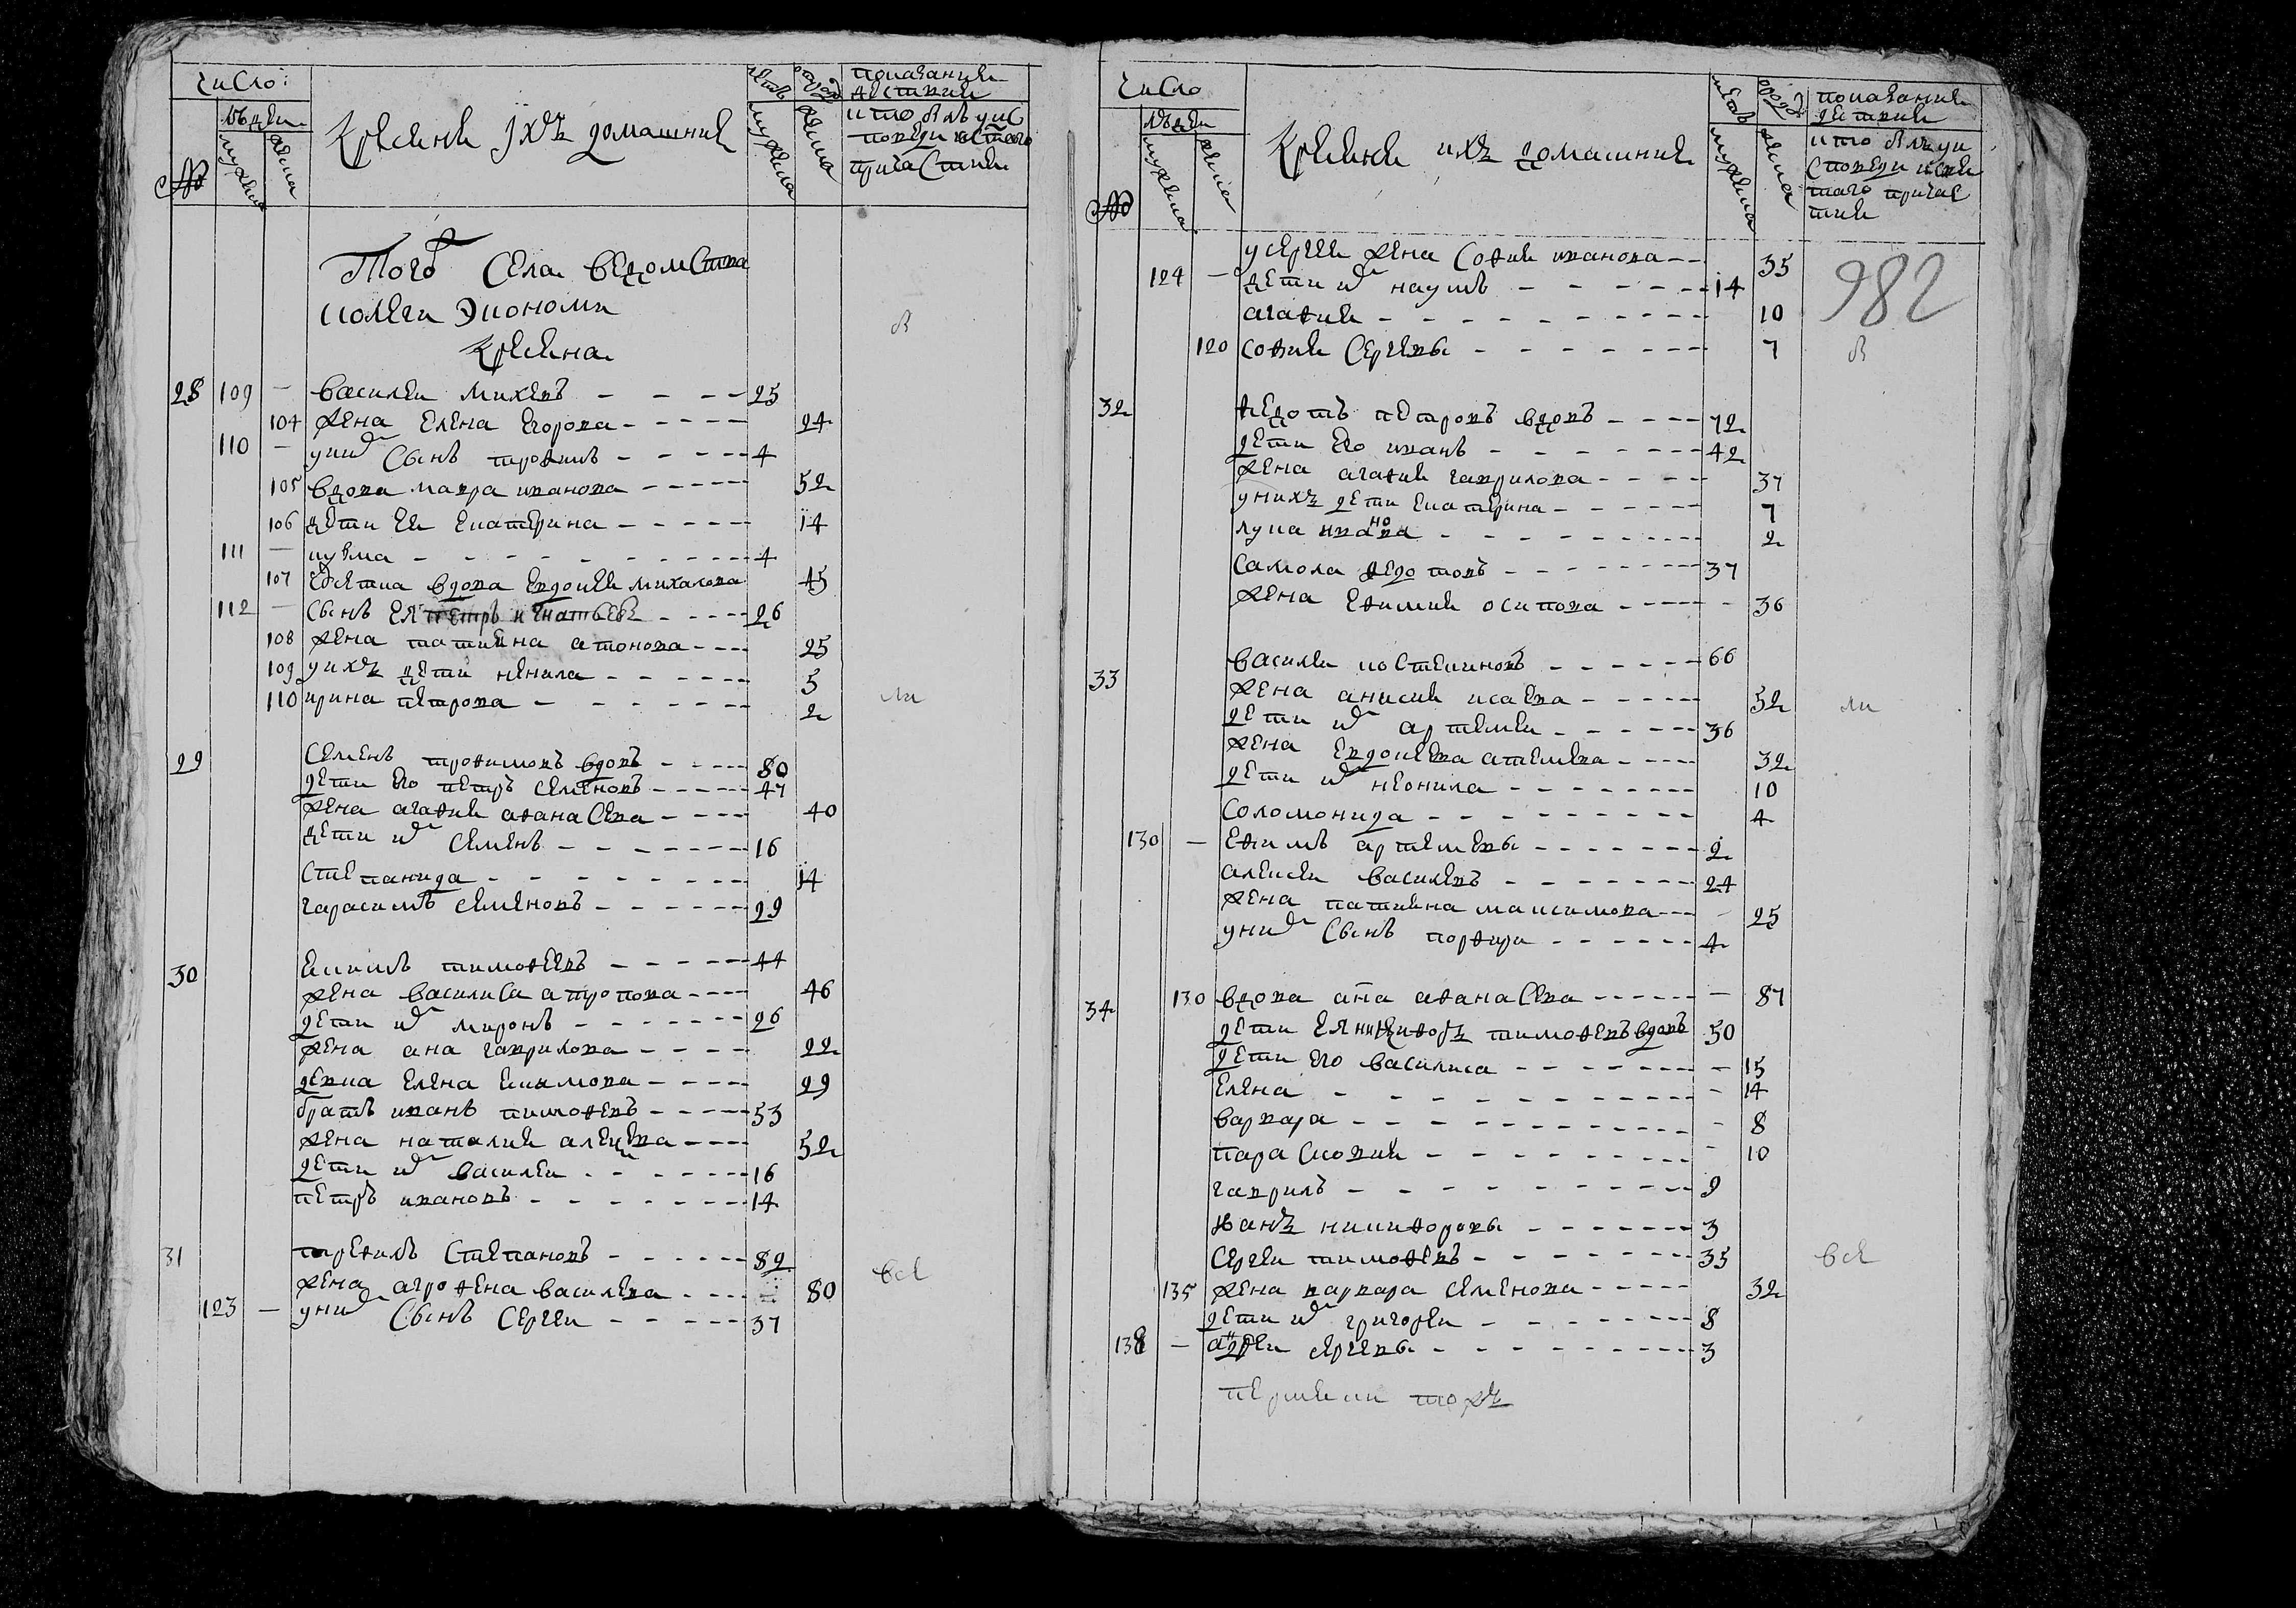 число:
№
мужеска
женска
крестьяне ихъ домашние
мужеска
женска
показание
кто былъ у ис
поведи и стаго
причастия
Того Села ведомства
колеги Экономи
крестьяна
в
28 109 — василеи михеевъ 25
104 жена елена егорова 24
110 — у них сынъ трофимъ 4
105 вдова мавра иванова 52
106 дети ей екатерина 14
111 — кузма 4
107 вдова евдокия михалова 45
112 — сынъ ея петръ игнатьевъ 26
108 жена татиана антонова 25
109 у ихъ дети ненила 5
110 ирина петрова 2
ли
29 семенъ трофимовъ вдовъ 80
дети его петръ семеновъ 47
жена агафия афанасева 40
дети их семенъ 16
степанида 14
гарасимъ семеновъ 29
30 екимъ тимофеевъ 44
жена василиса атропова 46
дети их миронъ 26
жена ана гаврилова 22
девка елена екимова 29
братъ иванъ тимофеевъ 53
жена наталия алексеева 52
дети их василеи 16
петръ ивановъ 14
31 трефилъ степановъ 82
жена агрофена василева 80
все
123 — у них сынъ сергеи 37
число
№
мужеска
женска
крестьяне ихъ домашние
мужеска
женска
показание
кто былъ у и
споведи и свя
таго причас
тия
у сергеи жена софия иванова 35
124 — дети их наумъ 14
агафия 10
982
120 софия сергеевы 7
в
32 федотъ петровъ вдовъ 72
дети его иванъ 42
жена агафия гаврилова 37
у нихъ дети екатерина 7
лукя ивано ва 2
самола федотовъ 37
жена ефимия осипова 36
33 василеи костентиновъ 66
жена анисия исаева 52
ли
дети их артемеи 36
жена евдокия 32
дети их неонила 10
соломонида 4
130 — ефимъ артемевы 2
алексеи василевъ 24
жена татиана максимова 25
у них сынъ порфири 4
34 130 вдова ана афанасева 87
дети ея никифоръ тимофеевъ вдовъ 50
дети его василиса 15
елена 14
варвара 8
парасковия 10
гаврилъ 9
иванъ никифоровы 3
сергеи тимофеевъ 35
все
135 жена варвара семенова 32
дети их григореи 8
138 — андреи сергеевы 3